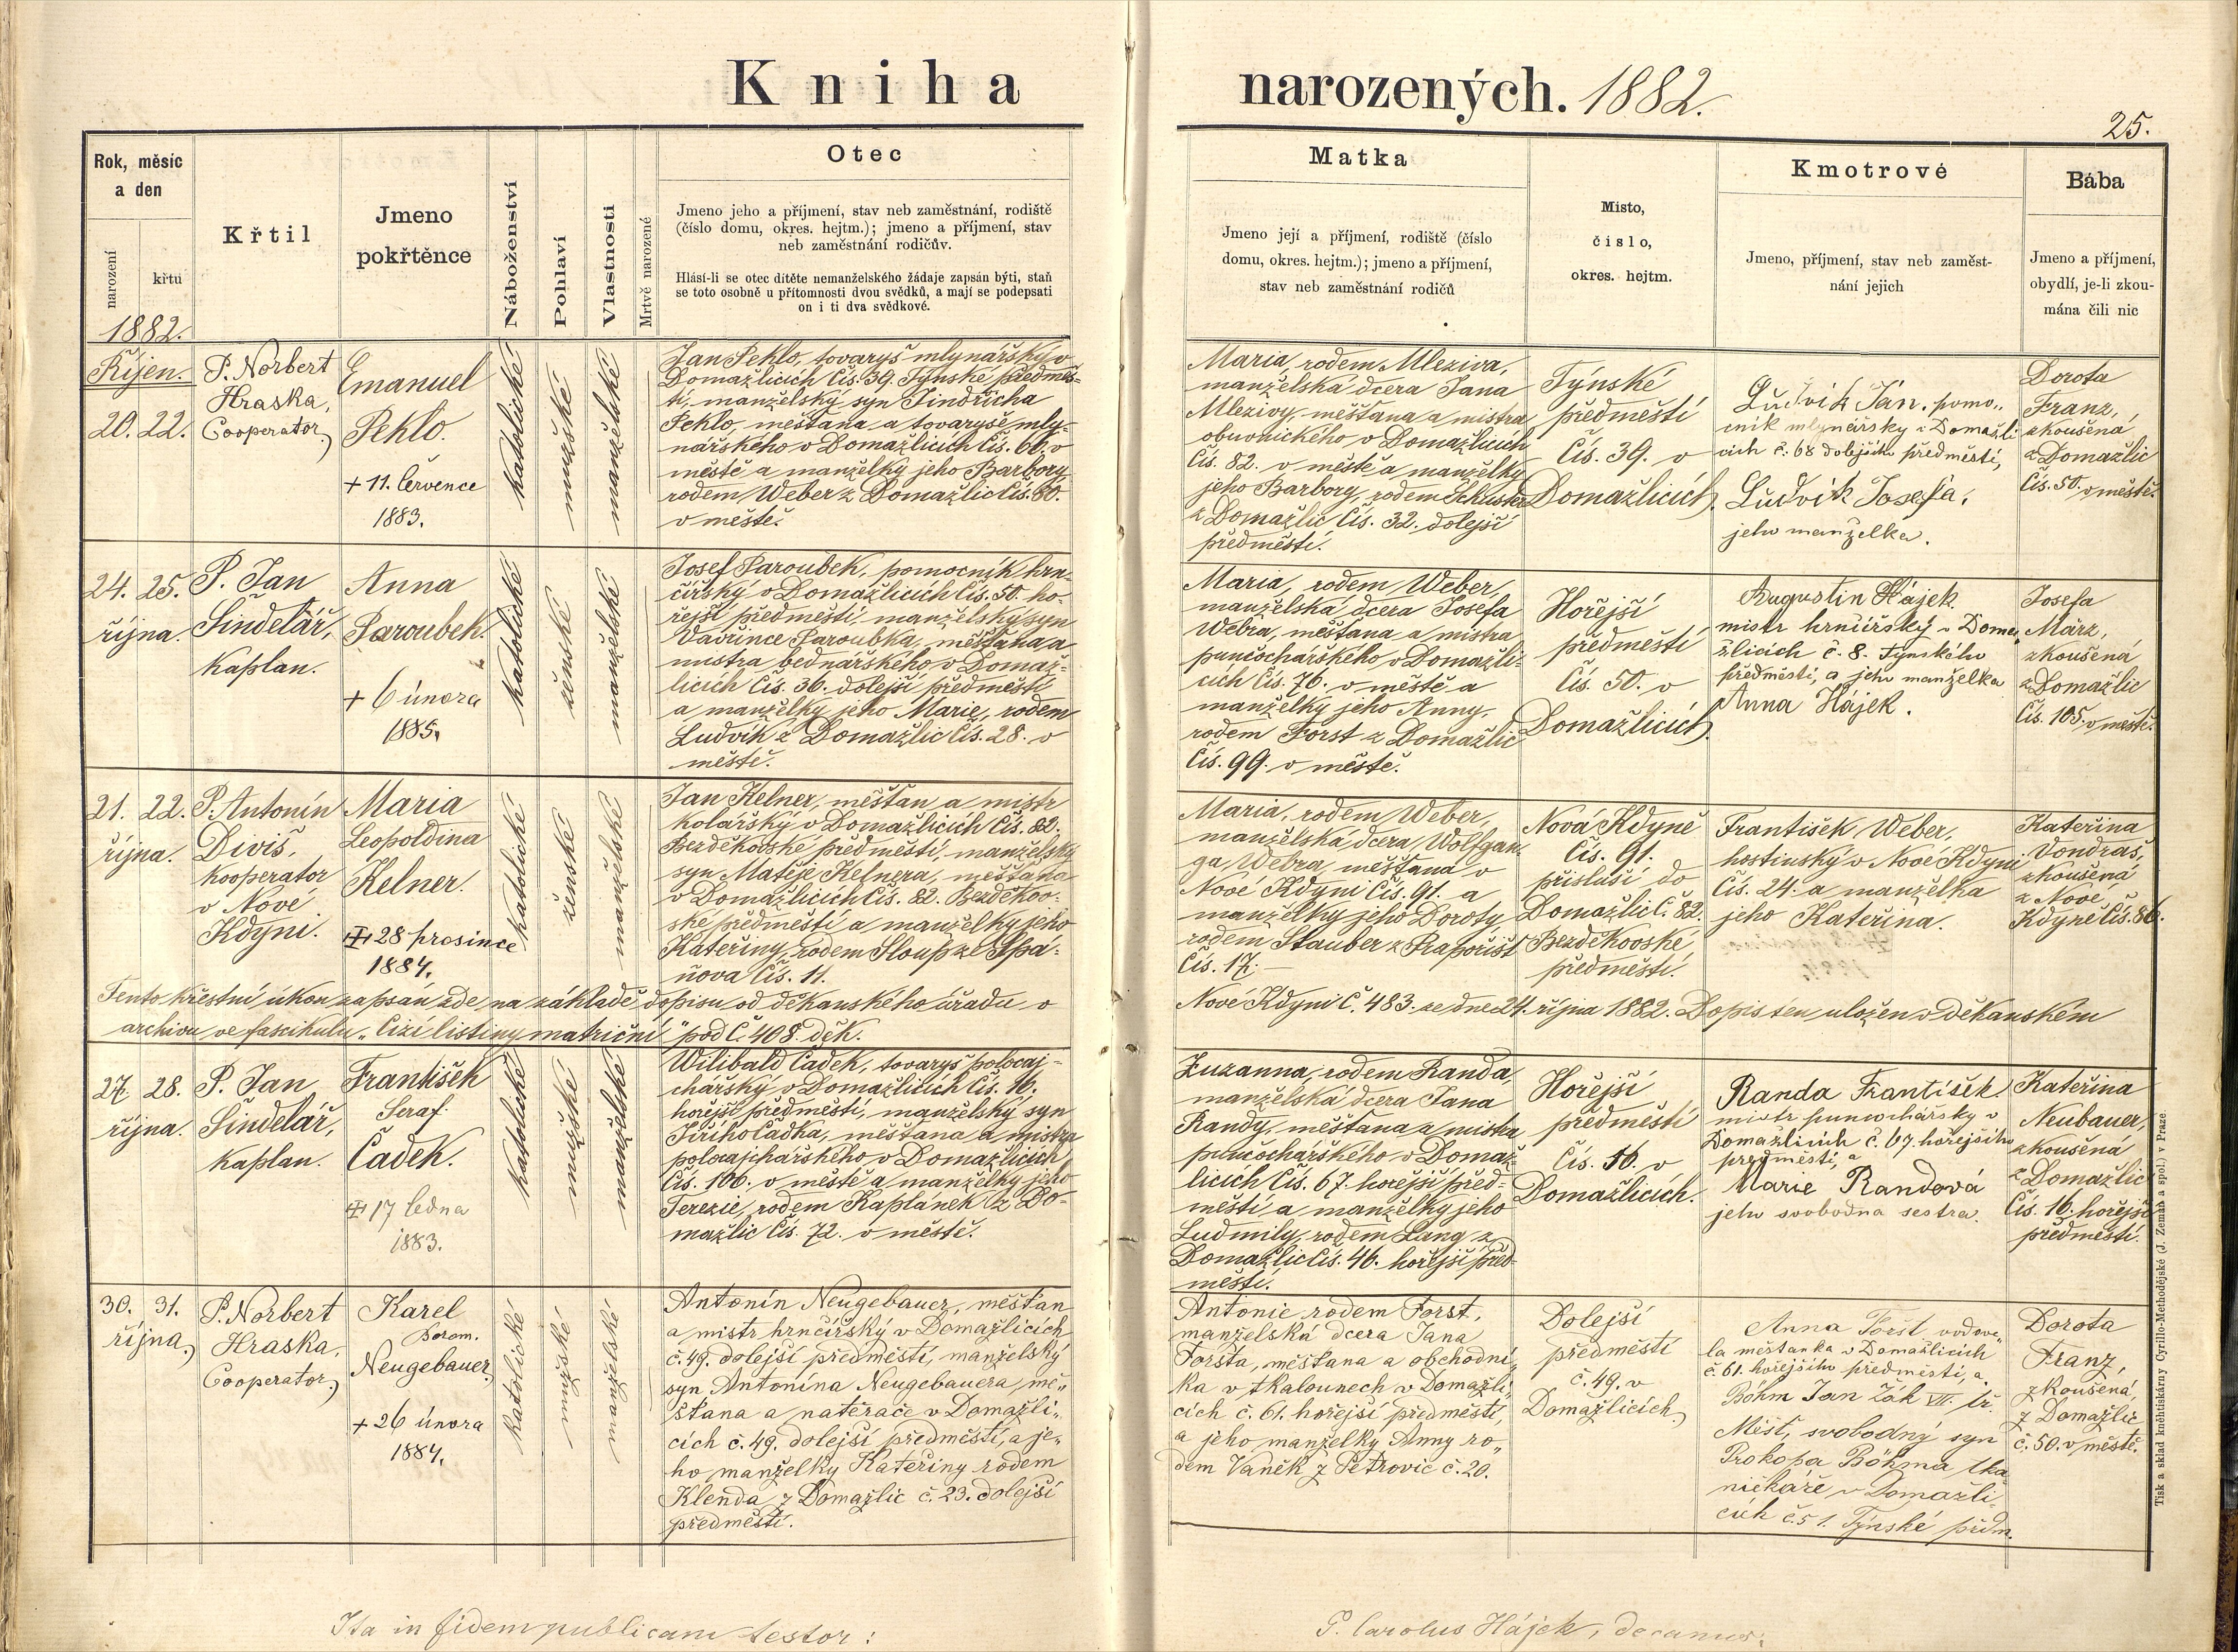 Kniha narozených. 1882.
25.
Rok, měsíc
a den
narození
křtu
Křtil
Jmeno
pokřtěnce
Náboženství
Pohlaví
Vlastnosti
Mrtvě narozené
Otec
Jmeno jeho a příjmení, stav neb zaměstnání, rodiště
(číslo domu, okres. hejtm.); jmeno a příjmení, stav
neb zaměstnání rodičův.
Hlásí-li se otec dítěte nemanželského žádaje zapsán býti, staň
se toto osobně u přítomnosti dvou svědků, a mají se podepsati
on i ti dva svědkové.
Matka
Jmeno její a příjmení, rodiště (číslo
domu, okres. hejtm.); jmeno a příjmení,
stav neb zaměstnání rodičů
Misto,
číslo,
okres. hejtm.
Kmotrové
Jmeno, příjmení, stav neb zaměst-
nání jejich
Bába
Jmeno a příjmení,
obydlí, je-li zkou-
mána čili nic
1882.
Říjen.
20. 22.
P. Norbert
Hraska,
Cooperator
Emanuel
Peklo.
+ 11. července
1883.
katolické
mužské
manželské
Jan Peklo, tovaryš mlynářský v
Domažlicích Čís. 39. Týnské předměs-
tí, manželský syn Jindřicha
Peklo, měšťana a tovaryše mly-
nářského v Domažlicích Čís. 60. v
městě a manželky jeho Barbory
rodem Weber z Domažlic Čís. 60.
v městě.
Maria, rodem Mleziva,
manželská dcera Jana
Mlezivy, měšťana a mistra
obuvnického v Domažlicích
Čís. 82. v městě a manželky
jeho Barbory, rodem Schuster
z Domažlic Čís. 32. dolejší
předměstí.
Týnské
předměstí
Čís. 39. v
Domažlicích.
Ludvík Jan, pomo-
cník mlynářský v Domažli
cích č. 68 dolejšího předměstí,
Ludvík Josefa,
jeho manželka.
Dorota
Franz,
zkoušená
z Domažlic
Čís. 50. v městě.
24. 25.
října.
P. Jan
Šindelář,
kaplan.
Anna
Paroubek.
+ 6 února
1885.
katolické
ženské
manželské
Josef Paroubek, pomocník hrn-
čířský v Domažlicích Čís. 50. ho-
řejší předměstí, manželský syn
Vavřince Paroubka, měšťana a
mistra bednářského v Domaž-
licích Čís. 36. dolejší předměstí
a manželky jeho Marie, rodem
Ludvík z Domažlic Čís. 28. v
městě.
Maria, rodem Weber,
manželská dcera Josefa
Webra, měšťana a mistra
punčochářského v Domažli-
cích Čís. 76. v městě a
manželky jeho Anny,
rodem Forst z Domažlic
Čís. 99. v městě.
Hořejší
předměstí
Čís. 50. v
Domažlicích.
Augustin Hájek.
mistr hrnčířský v Doma
žlicích č. 8. Týnského
předměstí, a jeho manželka
Anna Hájek.
Josefa
März,
zkoušená
z Domažlic
Čís. 105. v městě.
21. 22.
října.
P. Antonín
Diviš,
kooperator
v Nové
Kdyni.
Maria
Leopoldina
Kelner.
28 prosince
1884.
katolické
ženské
manželské
Jan Kelner, měšťan a mistr
kolářský v Domažlicích Čís. 82.
Bezděkovské předměstí, manželský
syn Matěje Kelnera, měšťana
v Domažlicích Čís. 82. Bezděkov-
ské předměstí a manželky jeho
Kateřiny, rodem Sloup ze Spá-
ňova Čís. 11.
Maria, rodem Weber,
manželská dcera Wolfgan-
ga Webra, měšťana v
Nové Kdyni Čís. 91. a
manželky jeho Doroty,
rodem Stauber z Prapořišť
Čís. 17.
Nová Kdyně
Čís. 91.
přísluší do
Domažlic Č. 82.
Bezděkovské
předměstí.
František Weber,
hostinský v Nové Kdyni
Čís. 24. a manželka
jeho Kateřina.
Kateřina
Vondraš,
zkoušená
z Nové
Kdyně Čís. 86.
Tento křestní úkon zapsán zde na základě dopisu od děkanského úřadu v
Nové Kdyni Č. 483. ze dne 24. října 1882. Dopis ten uložen v děkanském
archivu ve fascikulu „Cizí listiny matriční" pod Č. 408. děk.
27. 28.
října.
P. Jan
Šindelář,
kaplan.
František
Seraf.
Čadek.
17 ledna
1883.
katolické
mužské
manželské
Wilibald Čadek, tovaryš polocaj-
chářský v Domažlicích Čís. 16.
hořejší předměstí, manželský syn
Jiřího Čadka, měšťana a mistra
polocajchářského v Domažlicích
Čís. 106. v městě a manželky jeho
Terezie, rodem Kaplánek z Do-
mažlic Čís. 72. v městě.
Zuzanna, rodem Randa,
manželská dcera Jana
Randy, měšťana a mistra
punčochářského v Domaž-
licích Čís. 67. hořejší před-
městí a manželky jeho
Ludmily, rodem Lang z
Domažlic Čís. 46. hořejší před-
městí.
Hořejší
předměstí
Čís. 16. v
Domažlicích.
Randa František.
mistr punčochářský v
Domažlicích č. 67. hořejšího
předměstí, a
Marie Randová
jeho svobodna sestra.
Kateřina
Neubauer,
zkoušená
z Domažlic
Čís. 16. hořejší
předměstí.
30. 31.
října.
P. Norbert
Hraska,
Cooperator
Karel
Borom.
Neugebauer
+ 26 února
1884.
katolické
mužské
manželské
Antonín Neugebauer, měšťan
a mistr hrnčířský v Domažlicích
č. 49. dolejší předměstí, manželský
syn Antonína Neugebauera, mě-
šťana a natěrače v Domažli-
cích č. 49. dolejší předměstí, a je-
ho manželky Kateřiny rodem
Klenda z Domažlic č. 23. dolejší
předměstí.
Antonie rodem Forst,
manželská dcera Jana
Forsta, měšťana a obchodní-
ka v tkalounech v Domažli-
cích č. 61. hořejší předměstí,
a jeho manželky Anny ro-
dem Vaněk z Petrovic č. 20.
Dolejší
předměstí
č. 49. v
Domažlicích
Anna Foršt vdove-
la měšťanka v Domažlicích
č. 61. hořejšího předměstí, a
Böhm Jan žák VII. tř.
Měšť, svobodný syn
Prokopa Böhma tka
níčkáře v Domažli-
cích č. 51. Týnské předm.
Dorota
Franz,
zkoušená,
z Domažlic
č. 50. v městě.
Ita in fidem publicam testor:
P. Carolus Hájek, decanus.
Tisk a sklad knihtiskárny Cyrillo-Methodějské (J. Zeman a spol.) v Praze.